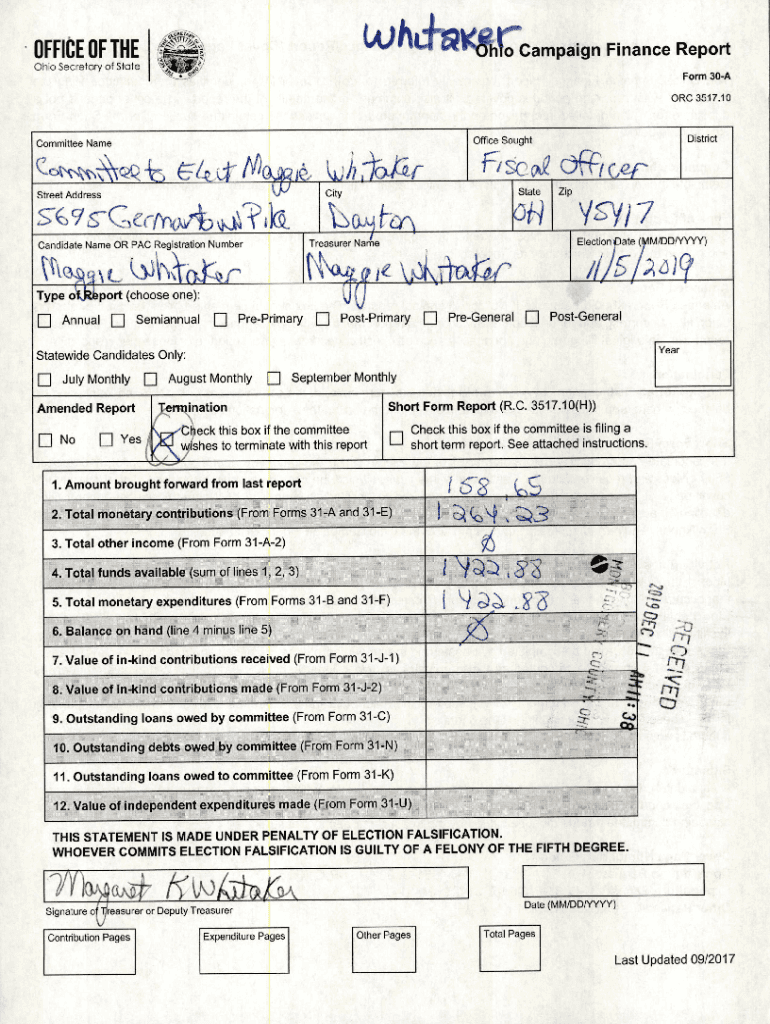 Whitaker
OFFICE OF THE
Ohio Secretary of State
Ohio Campaign Finance Report
Form 30-A
ORC 3517.10
Committee Name Office Sought District
Committee to Elect Maggie Whitaker Fiscal Officer
Street Address City State Zip
5695 Germantown Pike Dayton OH 45417
Candidate Name OR PAC Registration Number Treasurer Name Election Date (MM/DD/YYYY)
Maggie Whitaker Maggie Whitaker 11/5/2019
Type of Report (choose one):
Annual Semiannual Pre-Primary Post-Primary Pre-General Post-General
Statewide Candidates Only: Year
July Monthly August Monthly September Monthly
Amended Report Termination Short Form Report (R.C. 3517.10(H))
No Yes Check this box if the committee wishes to terminate with this report Check this box if the committee is filing a short term report. See attached instructions.
1. Amount brought forward from last report 158.65
2. Total monetary contributions (From Forms 31-A and 31-E) 1264.23
3. Total other income (From Form 31-A-2) Ø
4. Total funds available (sum of lines 1, 2, 3) 1422.88
5. Total monetary expenditures (From Forms 31-B and 31-F) 1422.88
6. Balance on hand (line 4 minus line 5) Ø
7. Value of in-kind contributions received (From Form 31-J-1)
8. Value of in-kind contributions made (From Form 31-J-2)
9. Outstanding loans owed by committee (From Form 31-C)
10. Outstanding debts owed by committee (From Form 31-N)
11. Outstanding loans owed to committee (From Form 31-K)
12. Value of independent expenditures made (From Form 31-U)
RECEIVED
2019 DEC 11 AM 11:38
MONTGOMERY COUNTY OHIO
THIS STATEMENT IS MADE UNDER PENALTY OF ELECTION FALSIFICATION.
WHOEVER COMMITS ELECTION FALSIFICATION IS GUILTY OF A FELONY OF THE FIFTH DEGREE.
Margaret K Whitaker
Signature of Treasurer or Deputy Treasurer Date (MM/DD/YYYY)
Contribution Pages Expenditure Pages Other Pages Total Pages
Last Updated 09/2017